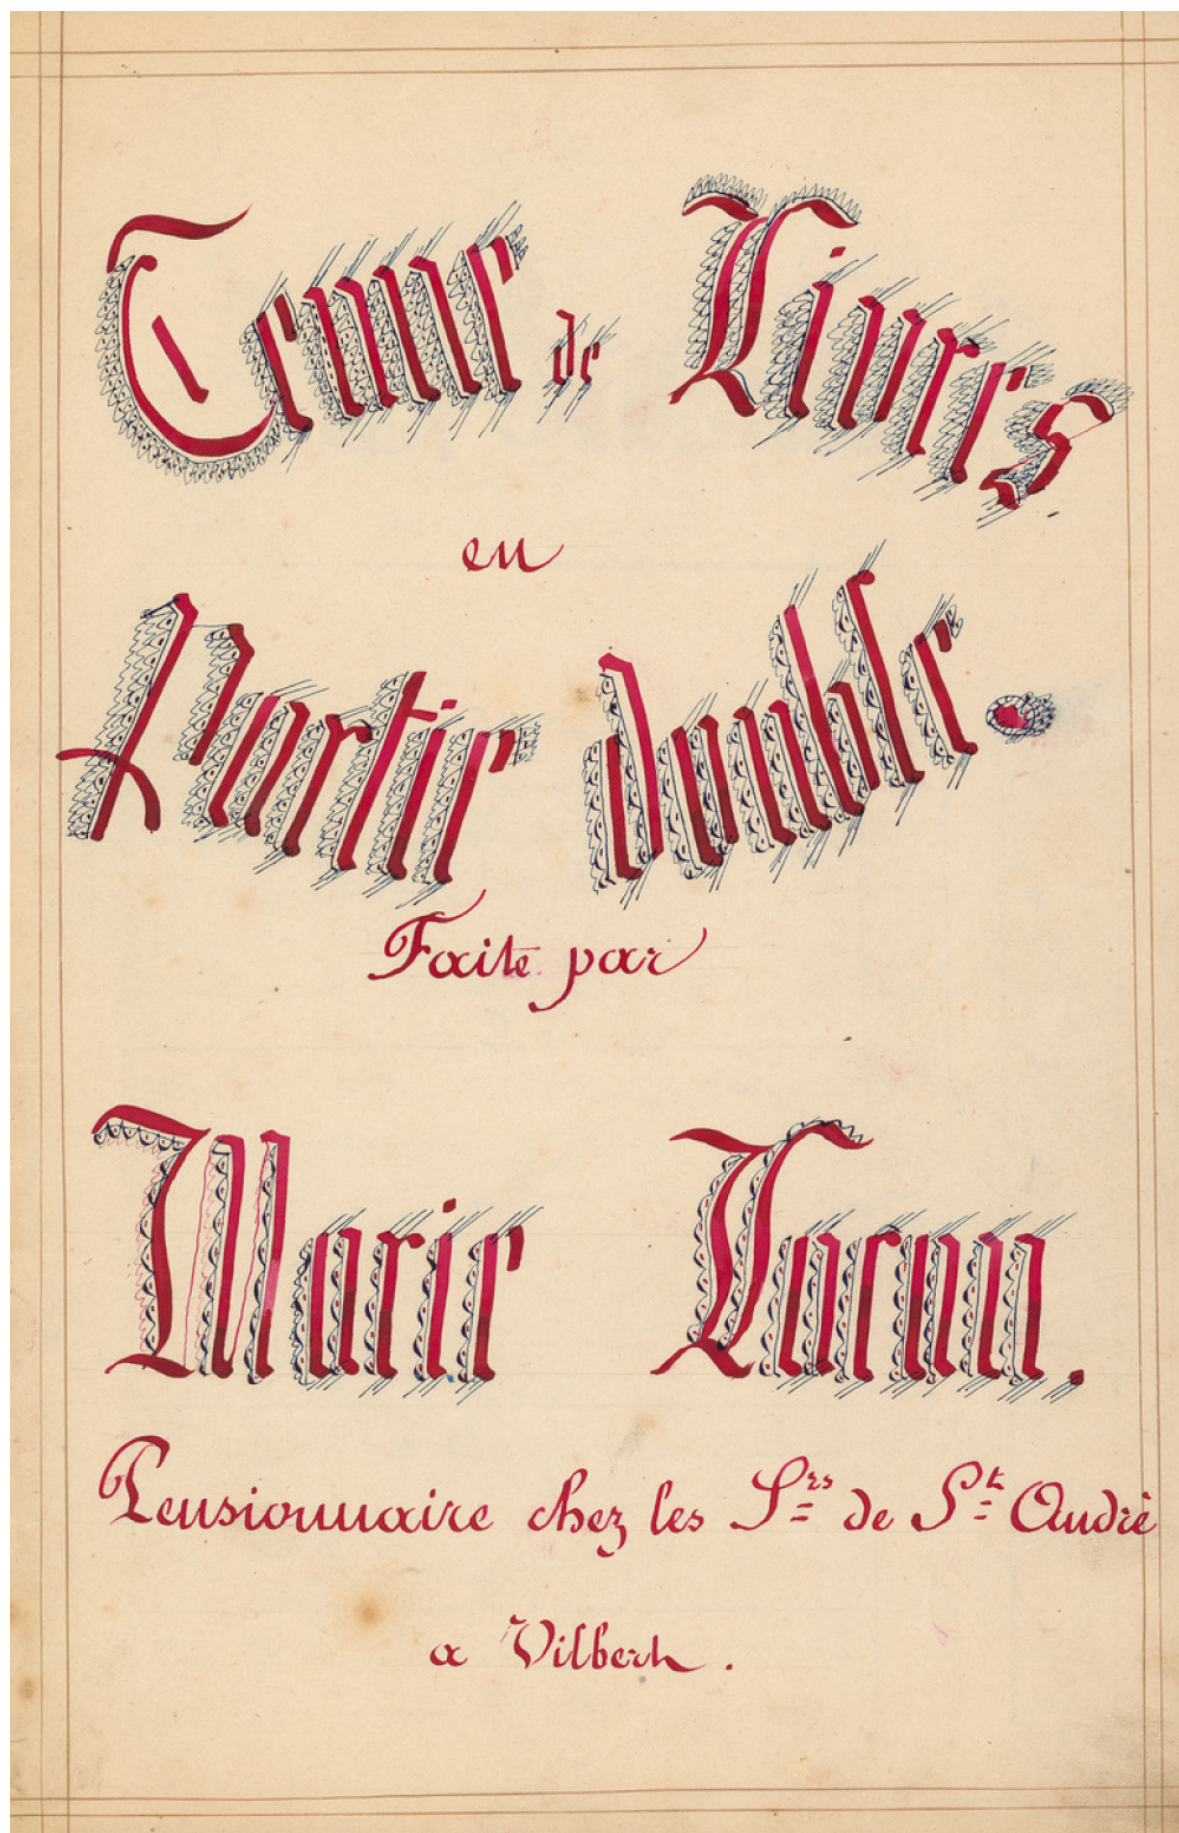 Tenue de Livres
en
Partie double.
Faite par
Marie
Pensionnaire chez les Srs de St André
a Vilbert.